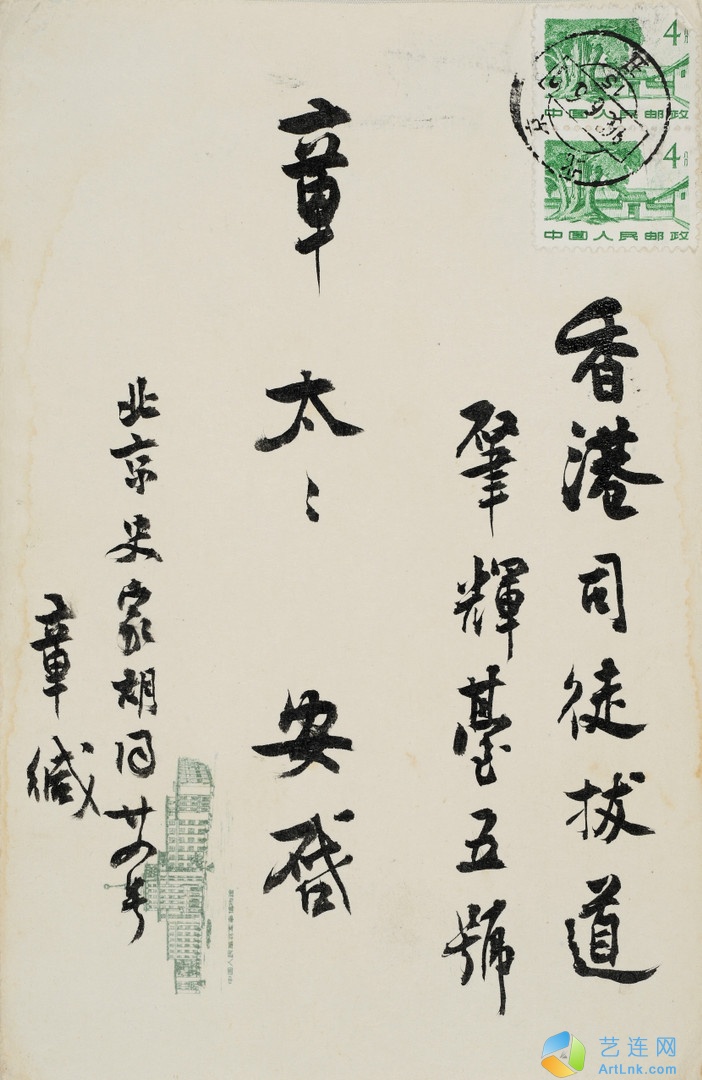 香港司徒拔道
肇輝臺五號
章太〻 安啓
北京史家胡同廿四号
章緘
4分
中国人民邮政
4分
中国人民邮政
北京
艺连网
ArtLnk.com